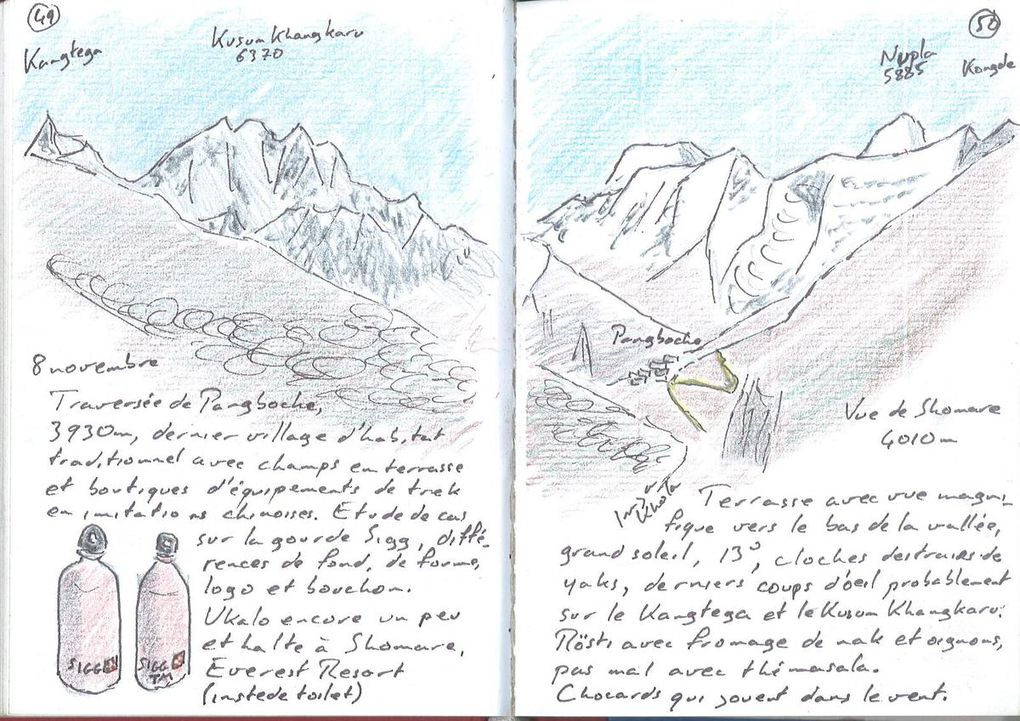 49
Kangtega
Kusum Khangkaru
6370
8 novembre
Traversée de Pangboche,
3930m, dernier village d'habitat
traditionnel avec champs en terrasse
et boutiques d'équipements de trek
en imitations chinoises. Etude de cas
sur la gourde Sigg, diffé-
rences de fond, de forme,
logo et bouchon.
Ukalo encore un peu
et halte à Shomare,
Everest Resort
(instede toilet)
SIGG
SIGG
TM
50
Nupla
5885
Kongde
Pangboche
Vue de Shomare
4010m
Imja
Khola
Terrasse avec vue magni-
fique vers le bas de la vallée,
grand soleil, 13°, cloches des trains de
yaks, derniers coups d'oeil probablement
sur le Kangtega et le Kusum Khangkaru.
Rösti avec fromage de nak et oignons,
pas mal avec thé masala.
Chocards qui jouent dans le vent.